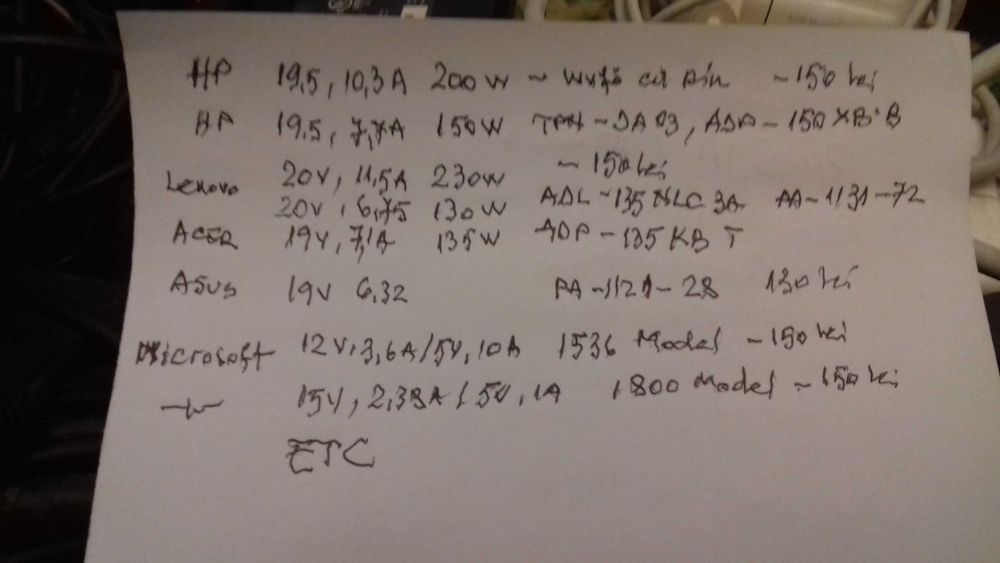 HP 19,5, 10,3A 200W ~ mufă cu pin ~150 lei
HP 19.5, 7,7A 150W TPN-DA03, ADP-150XB B
~150 lei
Lenovo 20V, 11,5A 230W
20V, 6,75 130W ADL-135NLC3A PA-1131-72
ACER 19V, 7,1A 135W ADP-135KB T
Asus 19V 6,32 PA-1121-28 130 lei
Microsoft 12V, 3,6A/5V, 10A 1536 Model ~150 lei
15V, 2,38A/5V, 1A 1800 Model ~150 lei
ETC